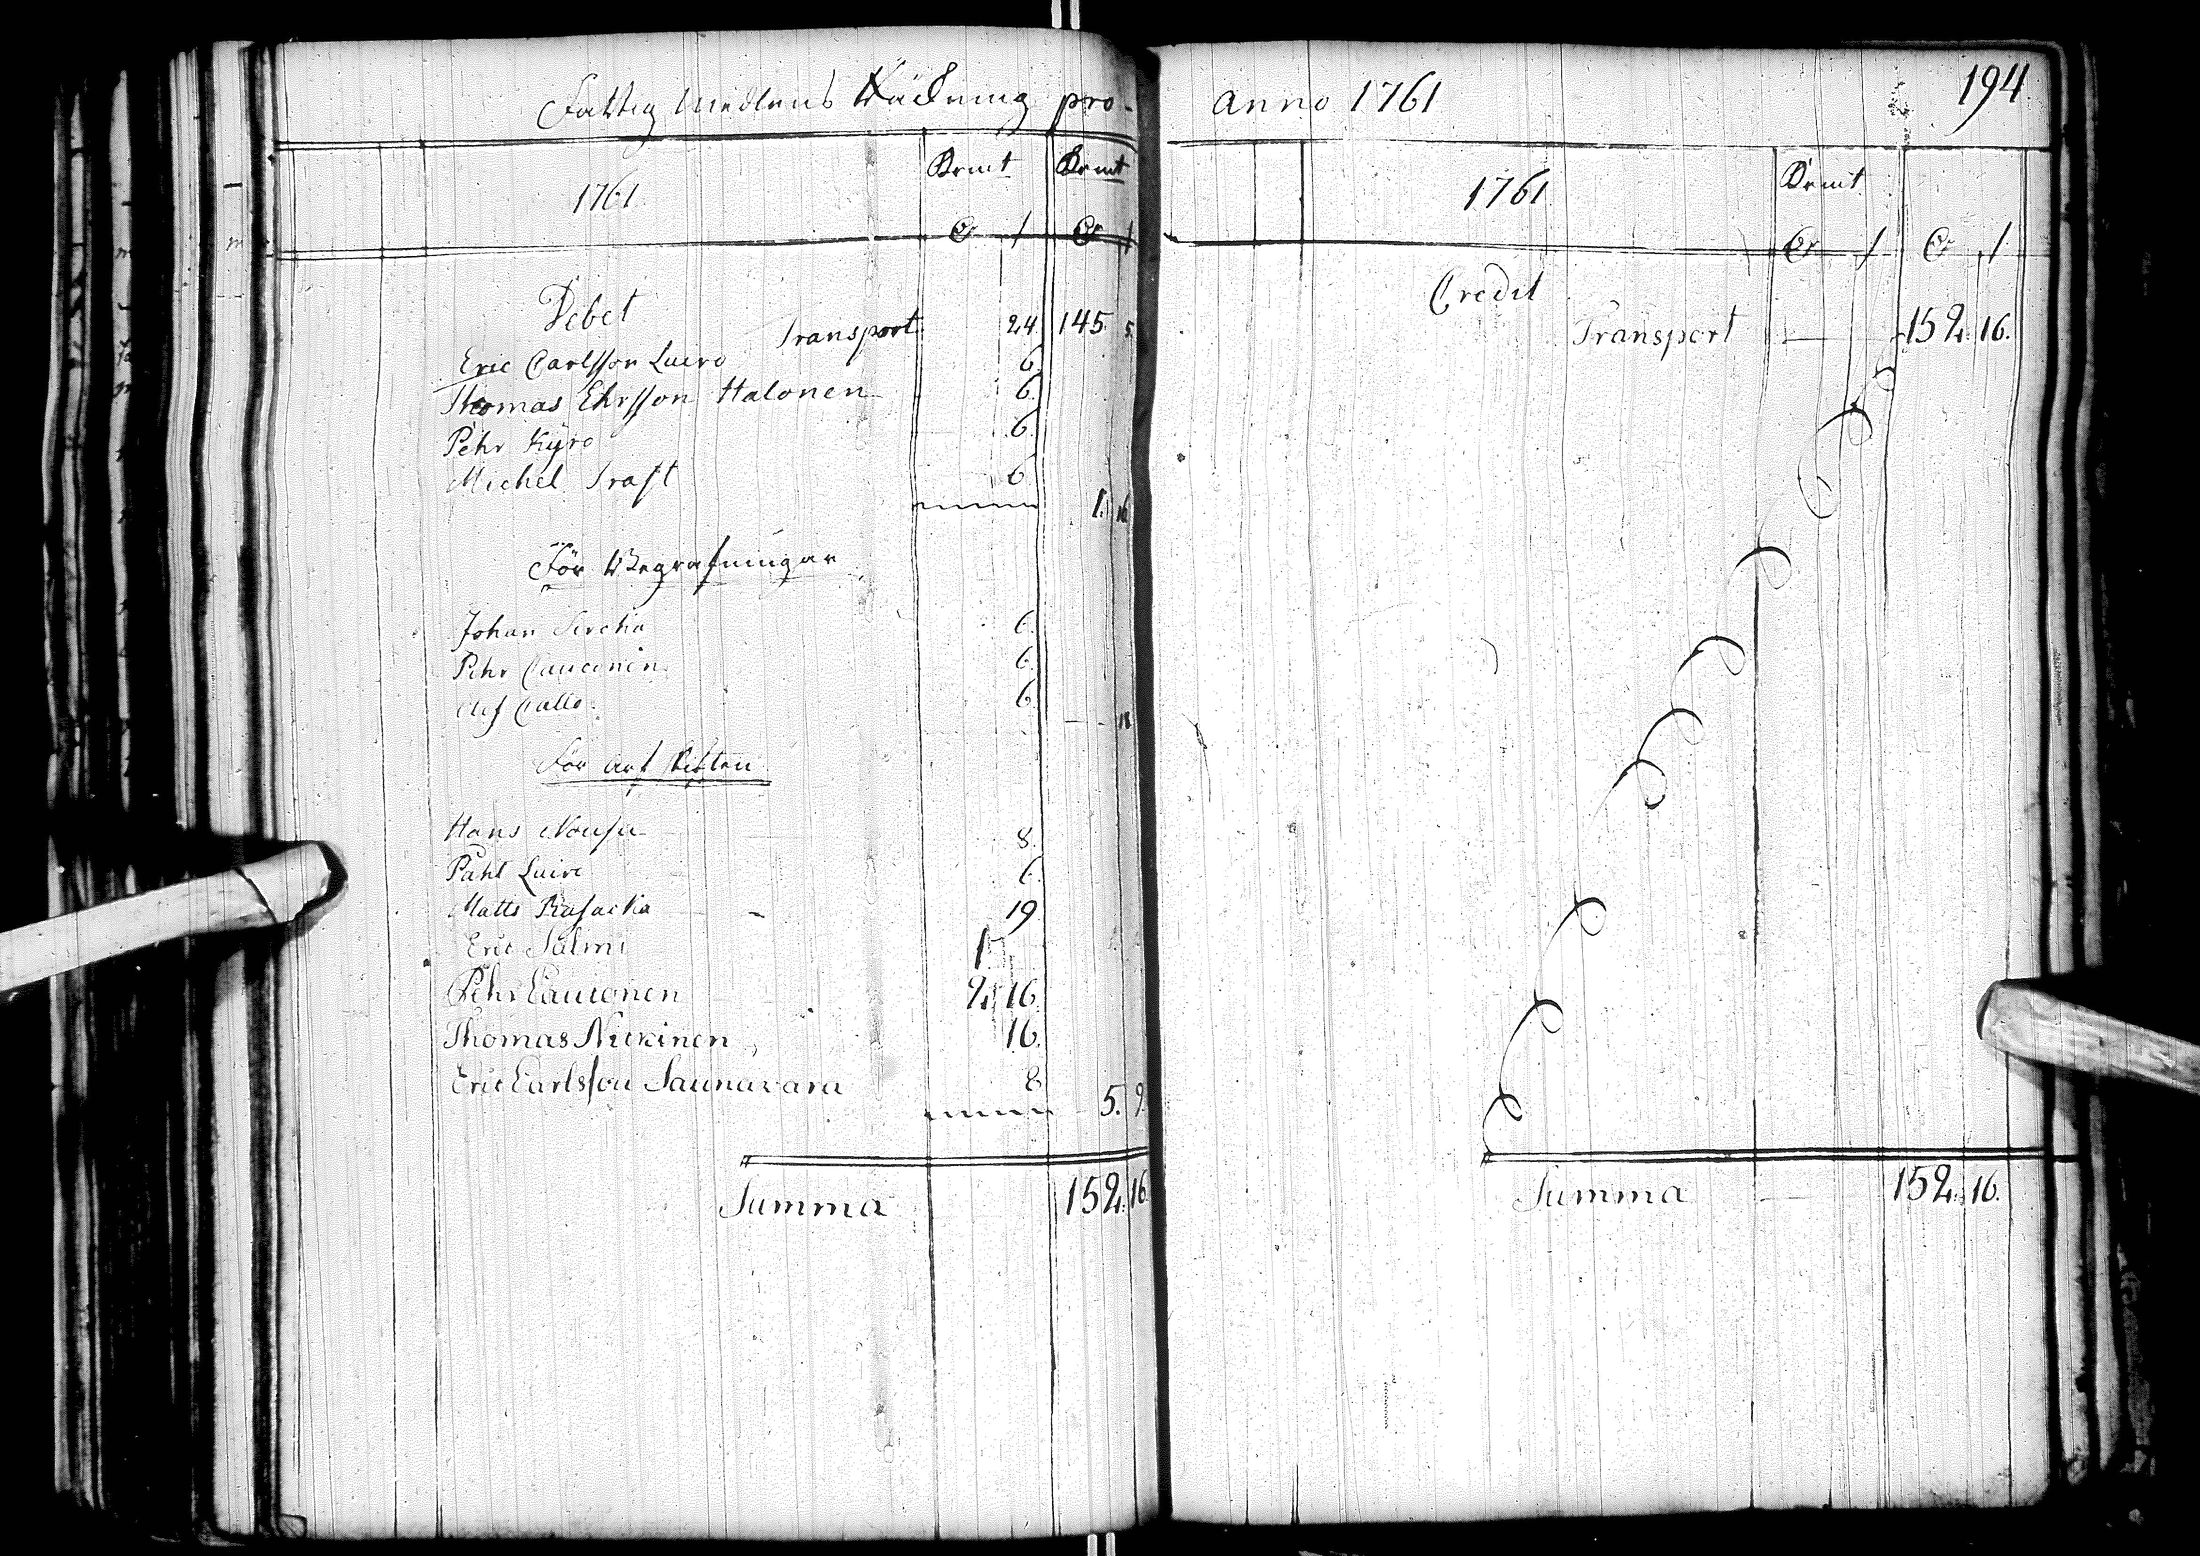 Fattig Medlens Räckning pro
1761
Krmt Krmt
Debet
Transport 24 145 5
Eric Carlsson Luiro 6.
Thomas Ehrsson Halonen 6.
Pehr Kyro 6.
Michel Trast 6
1. 16
För Begrafningar
Johan Sircka 6.
Pehr Cauconen 6.
Olof Callo 6
18
För arf skiften
Hans Nousu 8.
Påhl Luiro 6.
Matts Rasacka 19
Eric Salmi 1
Pehr Cauconen 2 16
Thomas Niskinen 16.
Eric Carlsson Saunavara 8
5. 9.
Summa 152. 16
194
anno 1761
1761
Krmt
Credit
Transport 152. 16.
Summa 152. 16.